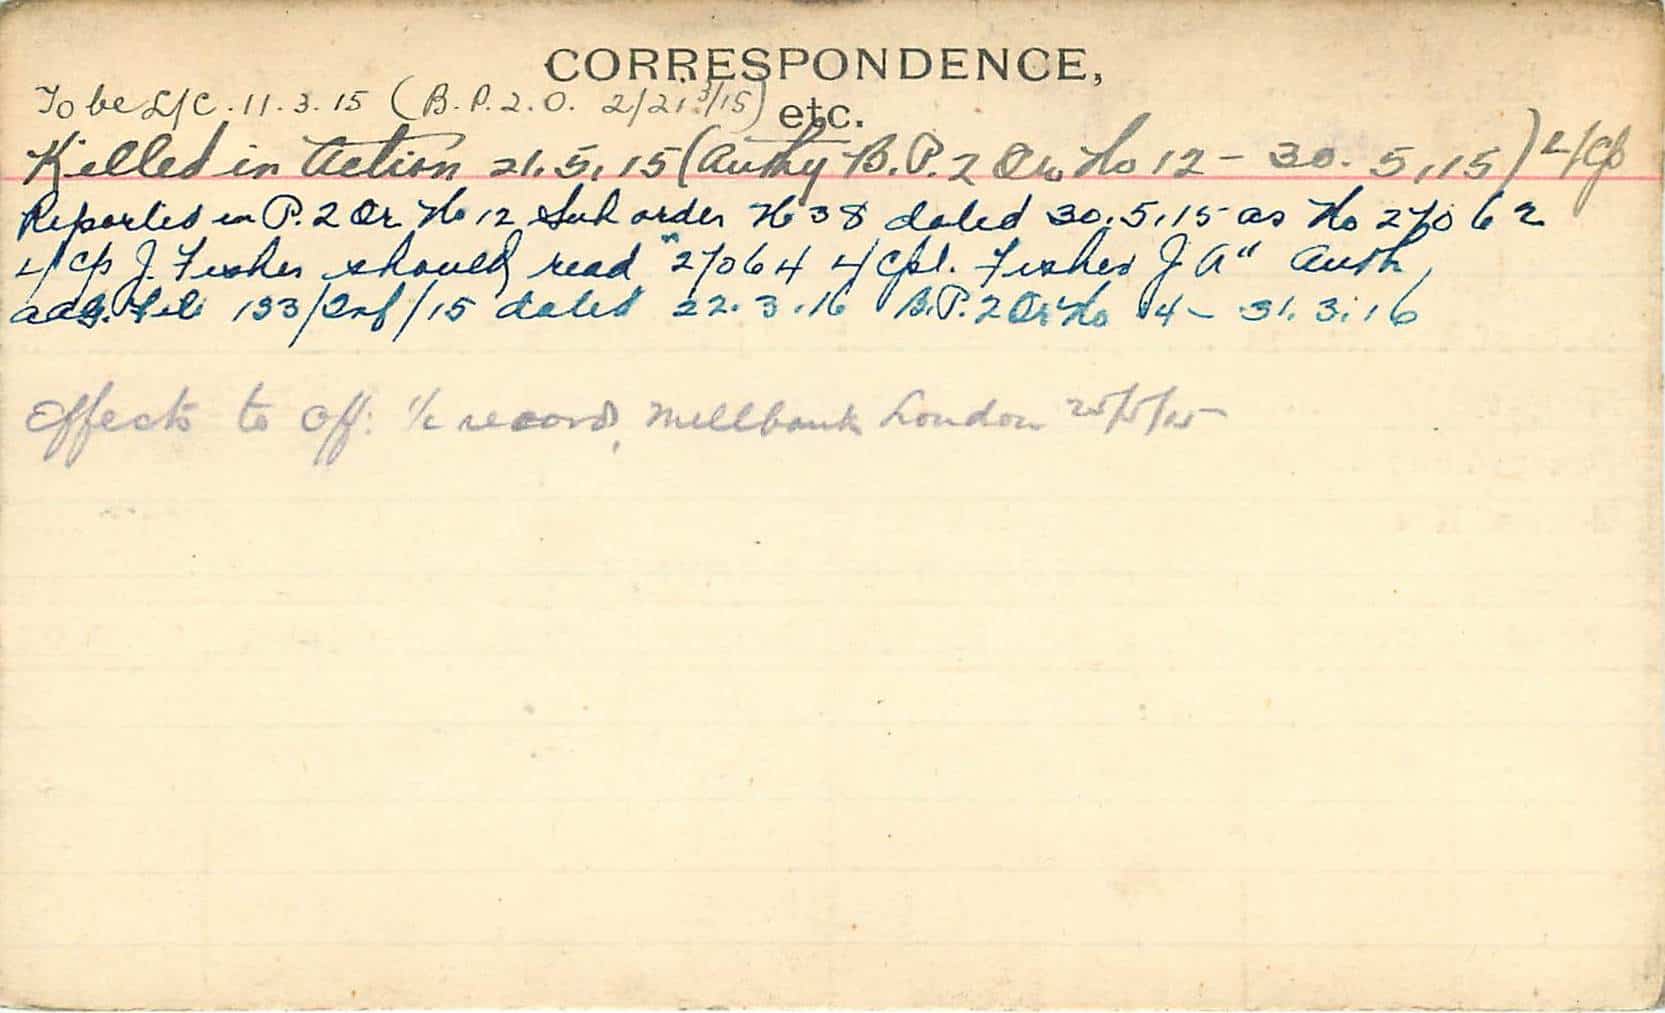 CORRESPONDENCE,
etc.
To be L/C. 11.3.15 (B.P.2.O. 2/21.3/15)
Killed in Action 21.5.15 (Authy B.P.2 Or. No 12 - 30.5.15) L/Cp
Reported in P.2 Or No 12 Sub order No 38 dated 30.5.15 as No 27062
L/Cp J. Fisher should read "27064 L/Cpl. Fisher J A" Auth,
adg. File 133/Inf/15 dated 22.3.16 B.P.2 Or No 4 - 31.3.16
Effects to Off: i/c records, Millbank London 25/5/15